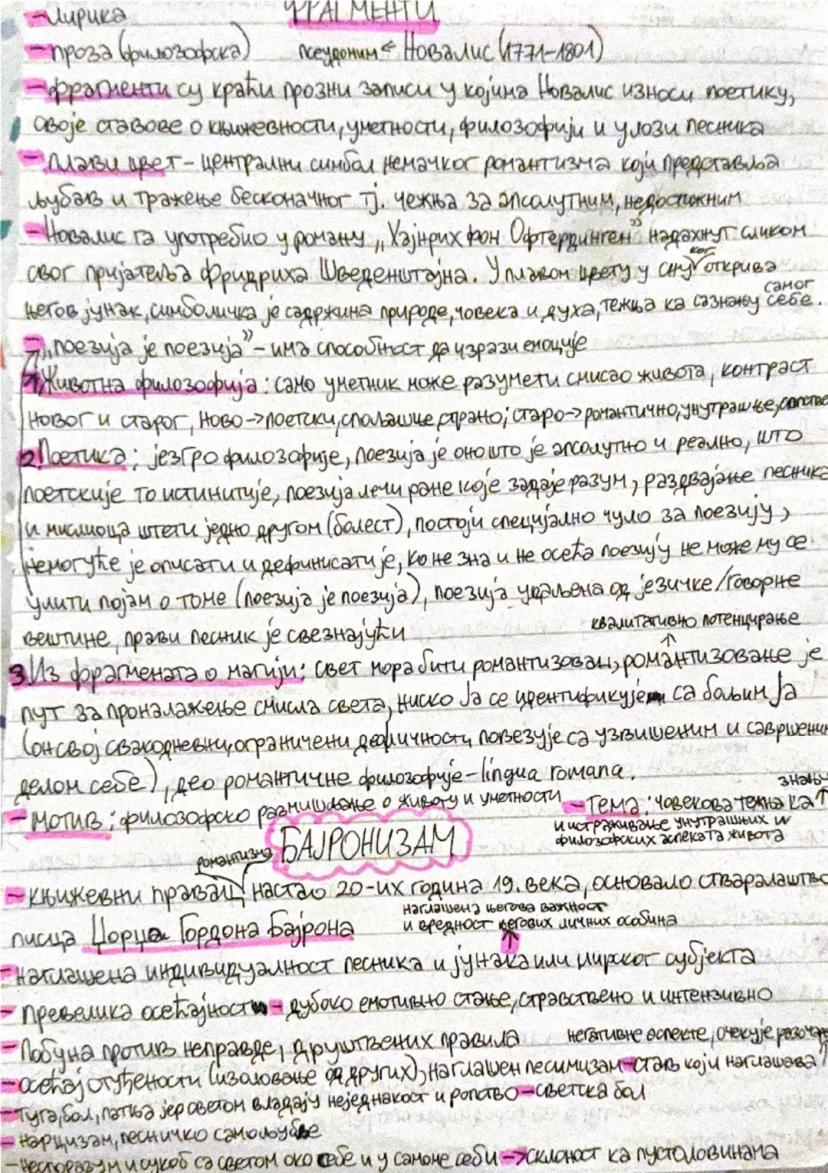 ФРАГМЕНТИ
-лирика
-проза (филозофска) псеудоним ← Новалис (1771-1801)
-фрагменти су краћи прозни записи у којима Новалис износи поетику,
своје ставове о књижевности, уметности, филозофији и улози песника
-плави цвет - централни симбол немачког романтизма који представља
љубав и тражење бесконачног тј. чежња за апсолутним, недостижним
-Новалис га употребио у роману „Хајнрих фон Офтердинген” надахнут сликом
свог пријатеља Фридриха Шведенштајна. У плавом цвету у сну ког открива
његов јунак, симболичка је садржина природе, човека и духа, тежња ка сазнању самог себе.
-„поезија је поезија” - има способност да изрази емоције
1. Животна филозофија: само уметник може разумети смисао живота, контраст
новог и старог, ново → поетски, спољашње, страно; старо → романтично, унутрашње,
2. Поетика: језгро филозофије, поезија је оно што је апсолутно и реално, што
поетскије то истинитије, поезија лечи ране које задаје разум, раздвајање песника
и мислиоца штети једно другом (болест), постоји специјално чуло за поезију,
немогуће је описати и дефинисати је, ко не зна и не осећа поезију не може му се
улити појам о томе (поезија је поезија), поезија удаљена од језичке/говорне
вештине, прави песник је свезнајући квалитативно потенцирање
3. Из фрагмената о магији: свет мора бити романтизован, романтизовање је ↑
пут за проналажење смисла света, ниско Ја се идентификује са бољим Ја
(он свој свакодневни, ограничени део личности повезује са узвишеним и савршеним
делом себе), део романтичне филозофије - lingua romana.
-мотив: филозофско размишљање о животу и уметности -Тема: човекова тежња ка ↑ знању
и истраживање унутрашњих и
филозофских аспеката живота
БАЈРОНИЗАМ
романтизма
-књижевни правац настао 20-их година 19. века, основало стваралаштво
писца Џорџа Гордона Бајрона наглашена његова важност
и вредност његових личних особина
-наглашена индивидуалност песника и јунака или лирског субјекта
-превелика осећајност - дубоко емотивно стање, страствено и интензивно
-Побуна против неправде, друштвених правила негативне аспекте, очекује
-осећај отуђености (изоловање од других), наглашен песимизам - став који наглашава ↑
-туга, бол, патња јер светом владају неједнакост и ропство - светска бол
-нарцизам, песничко самољубље
-неспоразум и сукоб са светом око себе и у самоме себи → склоност ка пустоловинама